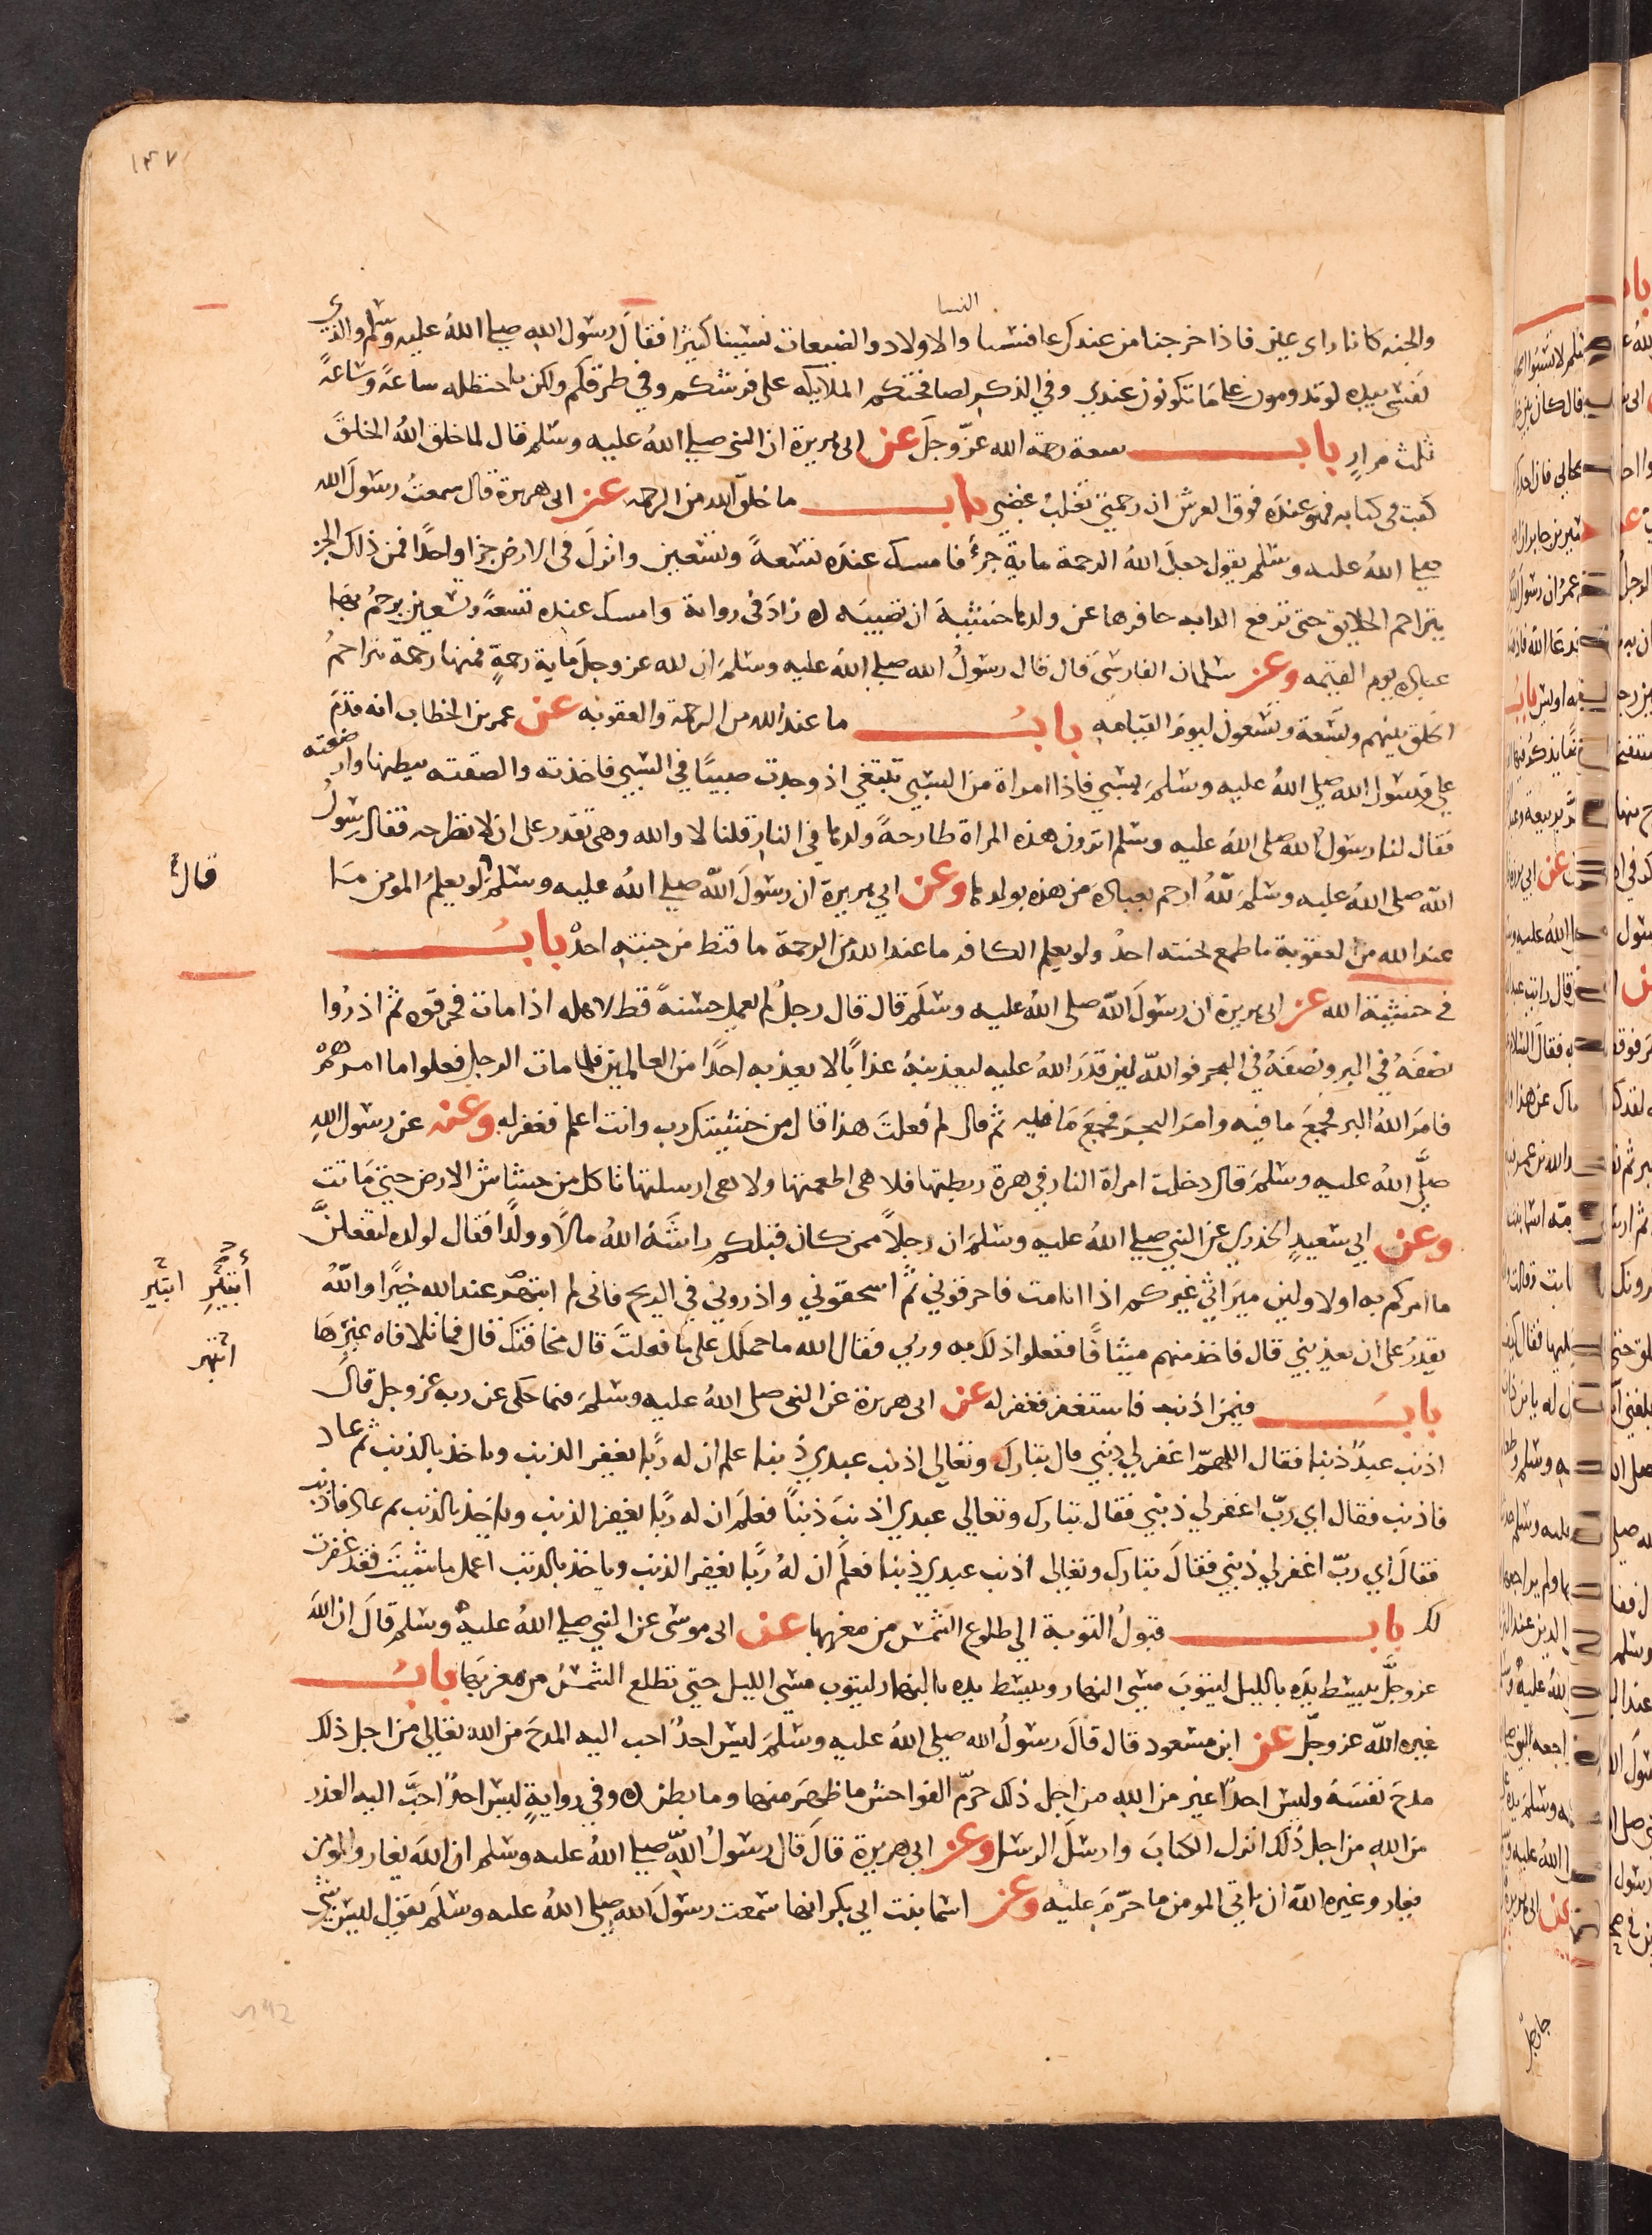 ١٣٧
النسا
والجنه كانا راى عين فاذا خرجنا من عندك عافسنا والاولاد والضيعات نسينا كثيرا فقال رسول الله صلى الله عليه وسلم والذي
نفسي بيده لو تدومون على ما تكونون عندي وفي الذكر لصافحتكم الملايكه على فرشكم وفي طرقكم ولكن يا حنظله ساعة وساعة
ثلث مرار باب سعة رحمة الله عز وجل عن ابى هريرة ان النبي صلى الله عليه وسلم قال لما خلق الله الخلق
كتب فى كتابه فهو عنده فوق العرش ان رحمتي تغلب غضبي باب ما خلق الله من الرحمه عن ابى هريرة قال سمعت رسول الله
صلى الله عليه وسلم يقول جعل الله الرحمة ماية جزء فامسك عنده تسعة وتسعين وانزل فى الارض جزا واحدا فمن ذلك الجز
يتراحم الخلايق حتى ترفع الدابه حافرها عن ولدها خشية ان تصيبه زاد فى رواية وامسك عنده تسعة وتسعين يرحم بها
عباده يوم القيمه وعن سلمان الفارسي قال قال رسول الله صلى الله عليه وسلم ان لله عز وجل ماية رحمة فمنها رحمة تراحم
الخلق بينهم وتسعة وتسعون ليوم القيامه باب ما عند الله من الرحمة والعقوبه عن عمر بن الخطاب انه قدم
على رسول الله صلى الله عليه وسلم بسبي فاذا امراة من السبي تبتغي اذ وجدت صبيا في السبي فاخذته والصقته ببطنها وارضعته
فقال لنا رسول الله صلى الله عليه وسلم اترون هذه المراة طارحة ولدها في النار قلنا لا والله وهى تقدر على ان لا تطرحه فقال رسول
الله صلى الله عليه وسلم لله ارحم بعباده من هذه بولدها وعن ابي هريرة ان رسول الله صلى الله عليه وسلم لو يعلم المومن ما
قال
عند الله من العقوبة ما طمع بجنته احد ولو يعلم الكافر ما عند الله من الرحمة ما قنط من جنته احد باب
في خشية الله عن ابى هريرة ان رسول الله صلى الله عليه وسلم قال قال رجل لم يعمل حسنة قط لاهله اذا مات فحرقوه ثم اذروا
نصفه في البر ونصفه في البحر فوالله لين قدر الله عليه ليعذبنه عذابا لا يعذبه احدا من العالمين فلما مات الرجل فعلوا ما امرهم
فامر الله البر فجمع ما فيه وامر البحر فجمع ما فيه ثم قال لم فعلت هذا قال من خشيتك رب وانت اعلم فغفر له وعنه عن رسول الله
صلى الله عليه وسلم قال دخلت امراة النار في هرة ربطتها فلا هى اطعمتها ولا هى ارسلتها تاكل من حشاش الارض حتى ماتت
وعن ابي سعيد الخذري عن النبي صلى الله عليه وسلم ان رجلا ممن كان قبلكم راشه الله مالا وولدا فقال لولده لتفعلن
ما امركم به اولا ولين ميراثي غيركم اذا انا مت فاحرقوني ثم اسحقوني واذروني في الريح فانى لم ابتهر عند الله خيرا والله
أبتئر ابتير
ابتهر
يقدر على ان يعذبني قال فاخذ منهم ميثاقا ففعلوا ذلك به وربي فقال الله ما حملك على ما فعلت قال مخافتك قال فما تلافاه غيرها
باب فيمن اذنب فاستغفر فغفر له عن ابى هريرة عن النبى صلى الله عليه وسلم فيما حكى عن ربه عز وجل قال
اذنب عبد ذنبا فقال اللهم اغفر لي ذنبي قال تبارك وتعالى اذنب عبدي ذنبا علم ان له ربا يغفر الذنب وياخذ بالذنب ثم عاد
فاذنب فقال اي رب اغفر لي ذنبي فقال تبارك وتعالى عبدي اذنب ذنبا فعلم ان له ربا يغفر الذنب وياخذ بالذنب ثم عاد فاذنب
فقال اي رب اغفر لي ذنبي فقال تبارك وتعالى اذنب عبدي ذنبا فعلم ان له ربا يغفر الذنب وياخذ بالذنب اعمل ما شيت فقد غفرت
لك باب قبول التوبة الى طلوع الشمس من مغربها عن ابى موسى عن النبي صلى الله عليه وسلم قال ان الله
عز وجل يبسط يده بالليل ليتوب مسي النهار ويبسط يده بالنهار ليتوب مسي الليل حتى تطلع الشمس من مغربها باب
غيره الله عز وجل عن ابن مسعود قال قال رسول الله صلى الله عليه وسلم ليس احد احب اليه المدح من الله تعالى من اجل ذلك
مدح نفسه وليس احد اغير من الله من اجل ذلك حرم الفواحش ما ظهر منها وما بطن وفي رواية ليس احد احب اليه العذر
من الله من اجل ذلك انزل الكتاب وارسل الرسل وعن ابى هريرة قال قال رسول الله صلى الله عليه وسلم ان الله يغار والمومن
يغار وغيره الله ان ياتي المومن ما حرم عليه وعن اسما بنت ابي بكر انها سمعت رسول الله صلى الله عليه وسلم يقول ليس شي